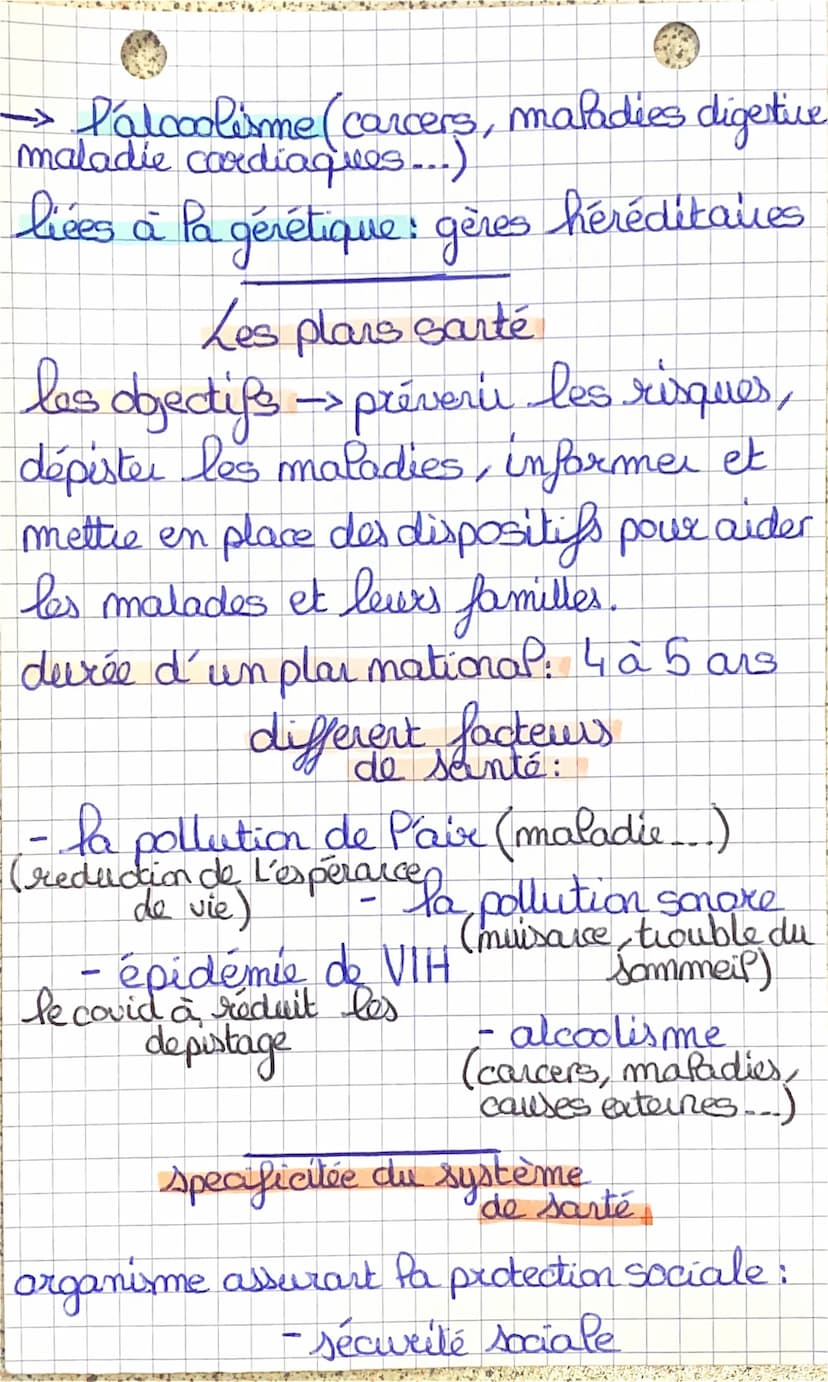 → l'alcoolisme (cancers, maladies digestive
maladie cardiaques...)
liées à la génétique : gènes héréditaires
Les plans santé
les objectifs → prévenir les risques,
dépister les maladies, informer et
mettre en place des dispositifs pour aider
les malades et leurs familles.
durée d'un plan national : 4 à 5 ans
different facteurs
de santé :
- la pollution de l'air (maladie...)
(reduction de l'espérance
de vie)
- la pollution sonore
(nuisance, trouble du
sommeil)
- épidémie de VIH
le covid à réduit les
depistage
- alcoolisme
(cancers, maladies,
causes externes...)
specificitée du système
de santé
organisme assurant la protection sociale :
- sécurité sociale